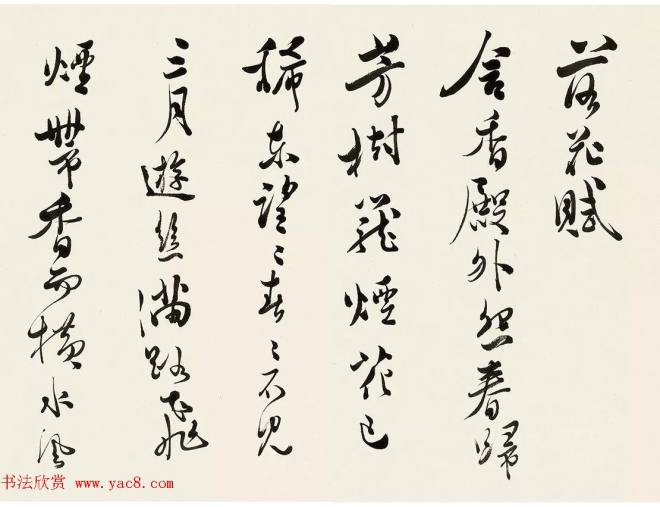 落花賦
含香殿外怨春歸
芳樹籠煙花已
稀東望々春々不見
三月遊絲滿路飛
煙帶香而橫水風
书法欣赏 www.yac8.com